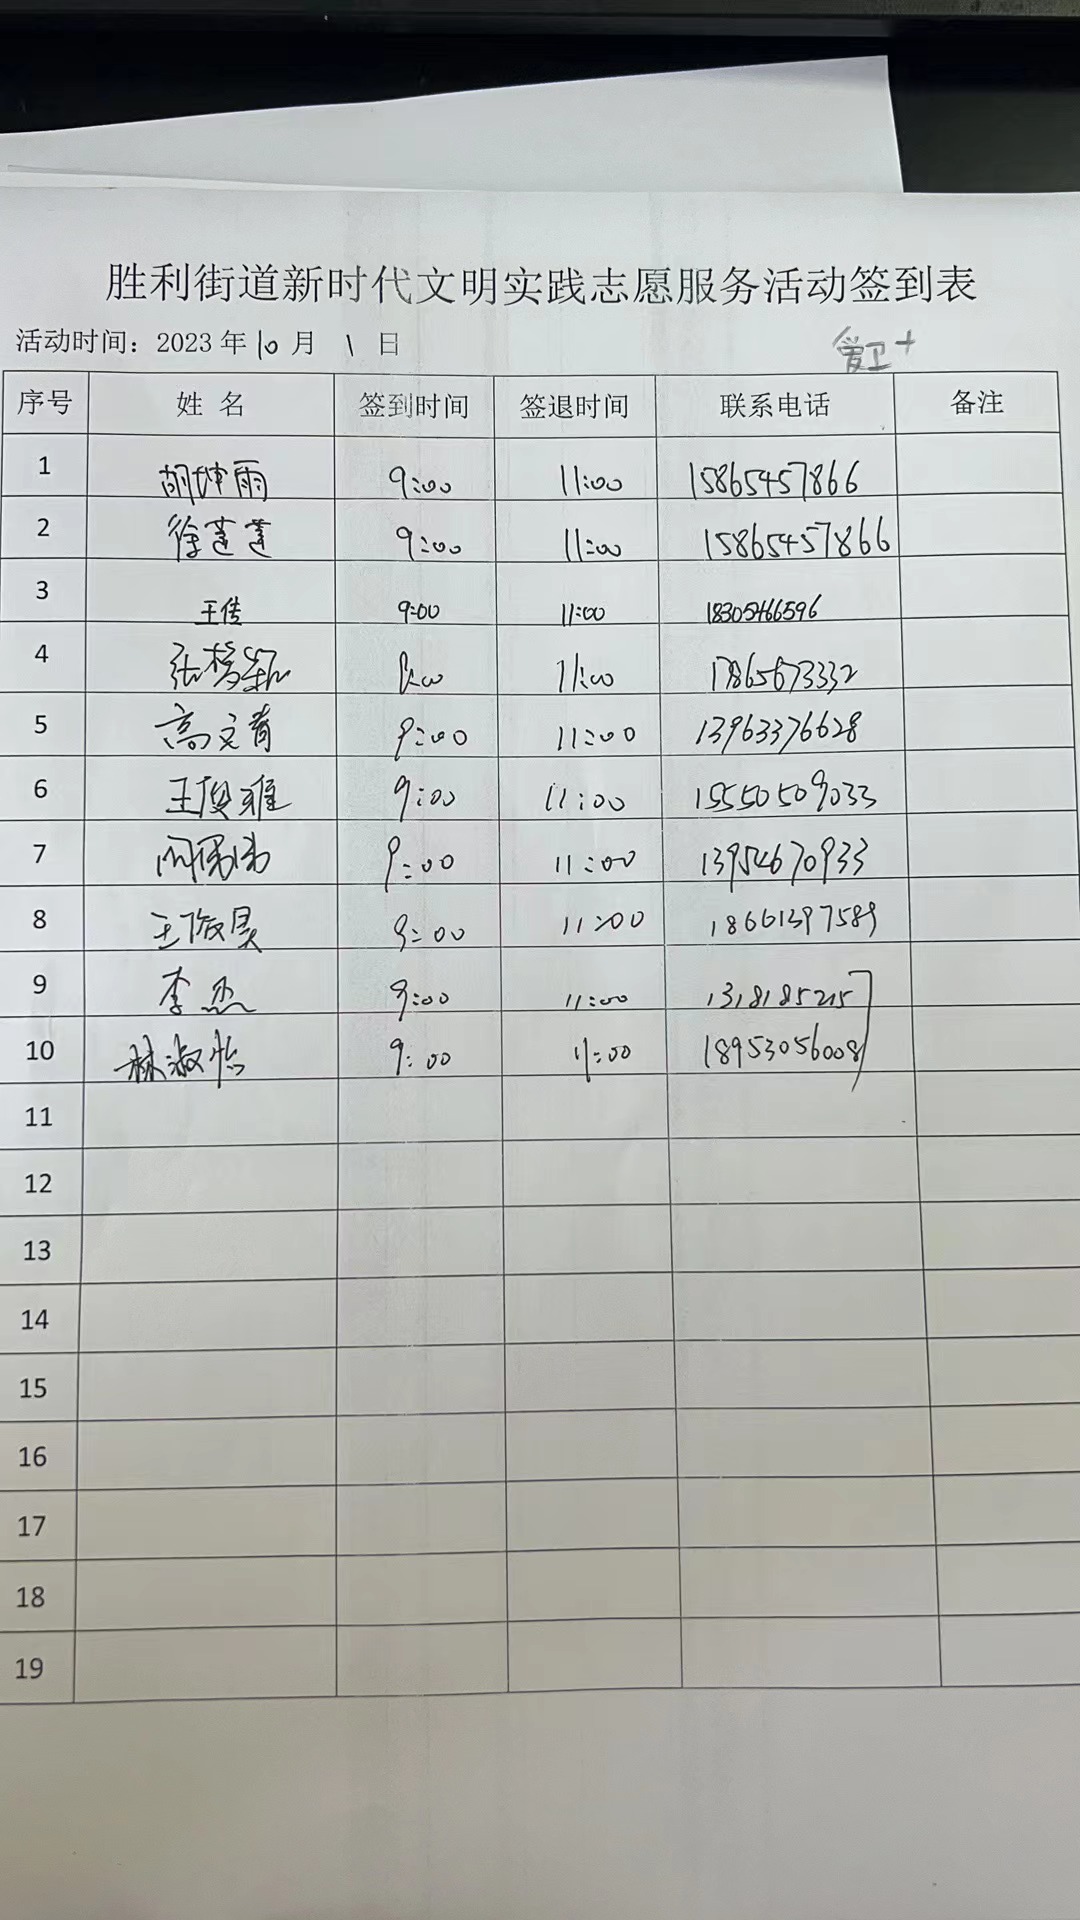 胜利街道新时代文明实践志愿服务活动签到表
活动时间：2023年10月 1 日 爱卫+
序号 姓 名 签到时间 签退时间 联系电话 备注
1 胡坤雨 9:00 11:00 15865457866
2 徐莲莲 9:00 11:00 15865457866
3 王传 9:00 11:00 18305466596
4 张梦颖 11:00 17865673332
5 高文青 9:00 11:00 13963376628
6 王俊雅 9:00 11:00 15550509033
7 9:00 11:00 13954670933
8 王俊昊 9:00 11:00 18661397589
9 李杰 9:00 11:00
10 林淑怡 9:00 11:00 18953056008
11
12
13
14
15
16
17
18
19